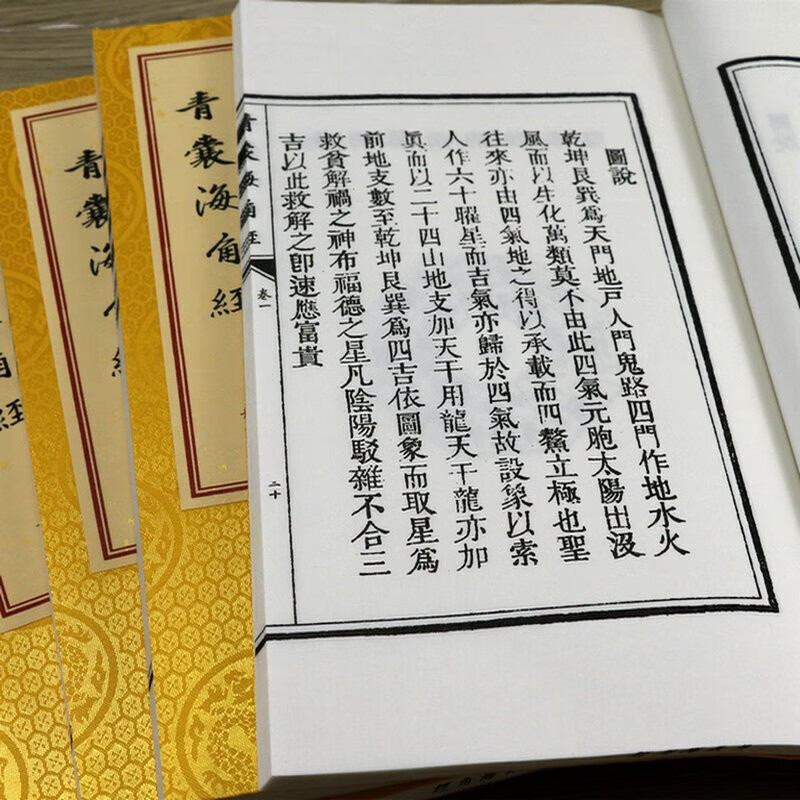 圖說
乾坤艮巽為天門地戶人門鬼路四門作地水火
風而以生化萬類莫不由此四氣元胞太陽出沒
往來亦由四氣地之得以承載而四鰲立極也聖
人作六十曜星而吉氣亦歸於四氣故設象以索
眞而以二十四山地支加天干用龍天干龍亦加
前地支數至乾坤艮巽為四吉依圖象而取星為
救貧解禍之神布福德之星凡陰陽駁雜不合三
吉以此救解之卽速應富貴
青囊海角經
卷一
二十
青囊海角經
青囊海角經
角經